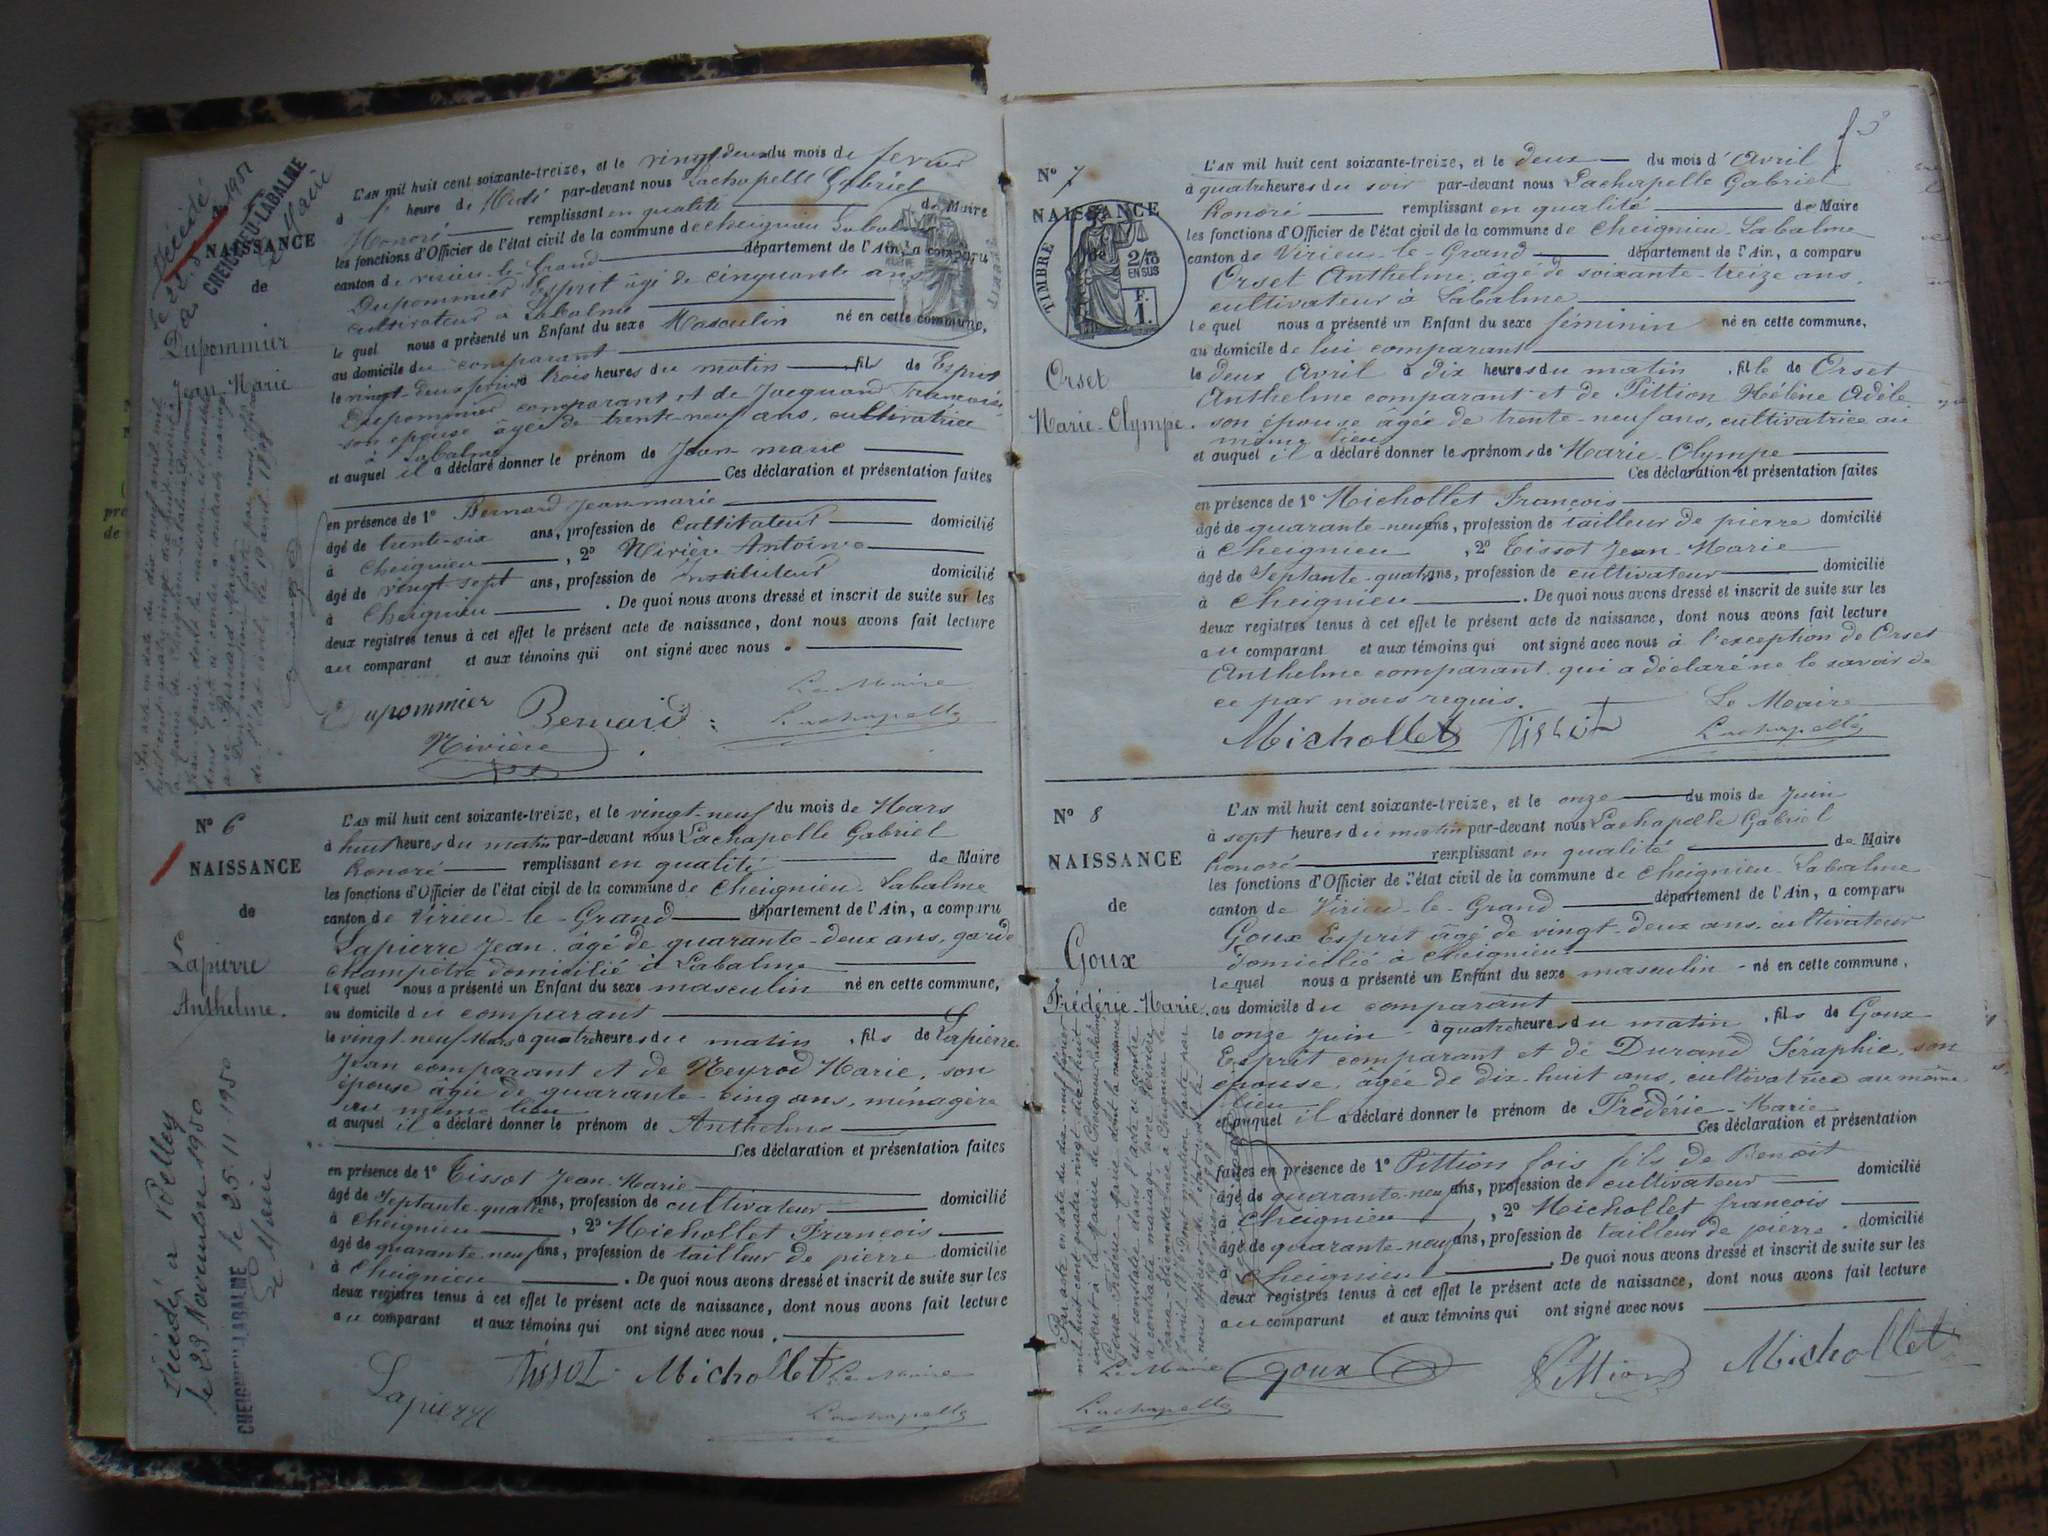 L'AN mil huit cent soixante-treize, et le vingt deux du mois de fevrier
à 1 heure de Midi par-devant nous Lachapelle Gabriel
Honoré remplissant en qualité de Maire
les fonctions d'Officier de l'état civil de la commune de Cheignieu Labalme
canton de virieu-le-Grand département de l'Ain, a comparu
Dupommier Esprit âgé de cinquante ans
cultivateur à Labalme
le quel nous a présenté un Enfant du sexe Masculin né en cette commune,
au domicile du comparant
le vingt-deux à trois heures du matin, fils de Esprit
Dupommier comparant et de Jacquand Françoise
son épouse âgée de trente-neuf ans, cultivatrice
à Labalme
et auquel il a déclaré donner le prénom de Jean-marie
Ces déclaration et présentation faites
en présence de 1° Bernard Jean marie
âgé de trente-six ans, profession de Cultivateur domicilié
à Cheignieu, 2° Rivière Antoine
âgé de vingt sept ans, profession de Instituteur domicilié
à Cheignieu. De quoi nous avons dressé et inscrit de suite sur les
deux registres tenus à cet effet le présent acte de naissance, dont nous avons fait lecture
au comparant et aux témoins qui ont signé avec nous.
Dupommier Bernard Le Maire
Rivière Lachapelle
Décédé
CHEIGNIEU-LABALME
NAISSANCE
de
Dupommier
Jean-Marie
N° 6
NAISSANCE
de
Lapierre
Anthelme.
Décédé à Rolley
le 23 Novembre 1950
CHEIGNIEU-LABALME le 25.11.1950
Le Maire
L'AN mil huit cent soixante-treize, et le vingt-neuf du mois de Mars
à huit heures du matin par-devant nous Lachapelle Gabriel
honoré remplissant en qualité de Maire
les fonctions d'Officier de l'état civil de la commune de Cheignieu-Labalme
canton de Virieu-le-Grand département de l'Ain, a comparu
Lapierre Jean âgé de quarante-deux ans, garde
champêtre domicilié à Labalme
le quel nous a présenté un Enfant du sexe masculin né en cette commune,
au domicile du comparant
le vingt-neuf Mars à quatre heures du matin, fils de Lapierre
Jean comparant et de Neyrod Marie, son
épouse âgée de quarante cinq ans, ménagère
au même lieu
et auquel il a déclaré donner le prénom de Anthelme
Ces déclaration et présentation faites
en présence de 1° Tissot Jean-Marie
âgé de Septante-quatre ans, profession de cultivateur domicilié
à Cheignieu, 2° Michollet François
âgé de quarante-neuf ans, profession de tailleur de pierre domicilié
à Cheignieu. De quoi nous avons dressé et inscrit de suite sur les
deux registres tenus à cet effet le présent acte de naissance, dont nous avons fait lecture
au comparant et aux témoins qui ont signé avec nous.
Lapierre Tissot Michollet Le Maire
Lachapelle
N° 7
NAISSANCE
de
TIMBRE
2/10
EN SUS
F.
1.
Orset
Marie-Olympe.
L'AN mil huit cent soixante-treize, et le deux du mois d'Avril
à quatre heures du soir par-devant nous Lachapelle Gabriel
honoré remplissant en qualité de Maire
les fonctions d'Officier de l'état civil de la commune de Cheignieu-Labalme
canton de Virieu-le-Grand département de l'Ain, a comparu
Orset Anthelme, âgé de soixante-treize ans,
cultivateur à Labalme
le quel nous a présenté un Enfant du sexe féminin né en cette commune,
au domicile de lui comparant
le deux Avril à dix heures du matin, fille de Orset
Anthelme comparant et de Pittion Hélène Adèle
son épouse âgée de trente-neuf ans, cultivatrice au
même lieu
et auquel il a déclaré donner les prénoms de Marie-Olympe
Ces déclaration et présentation faites
en présence de 1° Michollet François
âgé de quarante-neuf ans, profession de tailleur de pierre domicilié
à Cheignieu, 2° Tissot Jean-Marie
âgé de Septante-quatre ans, profession de cultivateur domicilié
à Cheignieu. De quoi nous avons dressé et inscrit de suite sur les
deux registres tenus à cet effet le présent acte de naissance, dont nous avons fait lecture
au comparant et aux témoins qui ont signé avec nous à l'exception de Orset
Anthelme comparant qui a déclaré ne le savoir de
ce par nous requis.
Michollet Tissot Le Maire
Lachapelle
N° 8
NAISSANCE
de
Goux
Frédéric-Marie.
L'AN mil huit cent soixante-treize, et le onze du mois de Juin
à sept heures du matin par-devant nous Lachapelle Gabriel
honoré remplissant en qualité de Maire
les fonctions d'Officier de l'état civil de la commune de Cheignieu-Labalme
canton de Virieu-le-Grand département de l'Ain, a comparu
Goux Esprit âgé de vingt-deux ans, cultivateur
domicilié à Cheignieu
le quel nous a présenté un Enfant du sexe masculin né en cette commune,
au domicile du comparant
le onze Juin à quatre heures du matin, fils de Goux
Esprit comparant et de Durand Séraphie, son
épouse, âgée de dix-huit ans, cultivatrice au même
lieu
et auquel il a déclaré donner le prénom de Frédéric-Marie
Ces déclaration et présentation
faites en présence de 1° Pittion fois fils de Benoit domicilié
âgé de quarante-neuf ans, profession de cultivateur
à Cheignieu, 2° Michollet françois
âgé de quarante-neuf ans, profession de tailleur de pierre domicilié
à Cheignieu. De quoi nous avons dressé et inscrit de suite sur les
deux registres tenus à cet effet le présent acte de naissance, dont nous avons fait lecture
au comparant et aux témoins qui ont signé avec nous
Le Maire Goux Pittion Michollet
Lachapelle